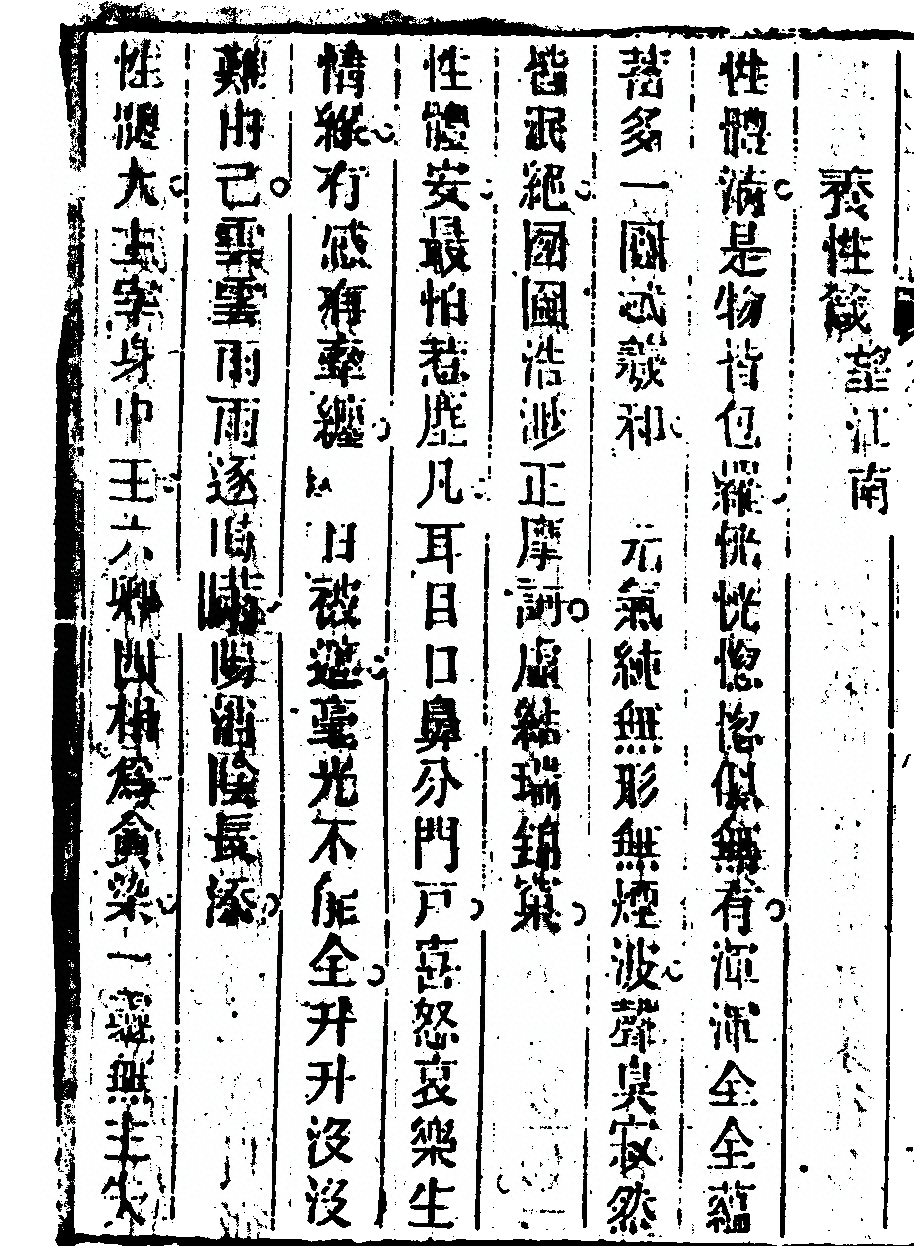 養性箴望江南
性體滿是物皆包羅恍恍惚惚似無有渾渾全全蘊
多一國 和 元氣純無形無煙波聲臭寂然
皆泯絕國國浩渺正摩訶虛結瑞錦窠
性體安最怕惹塵凡耳目口鼻分門戶喜怒哀樂生
情緣有感有牽纏 日被遮毫光不能全升升沒沒
難由己雲雲雨雨逐 陽消陰長添
性體大主宰身中王六 四相為貪染一 無主失